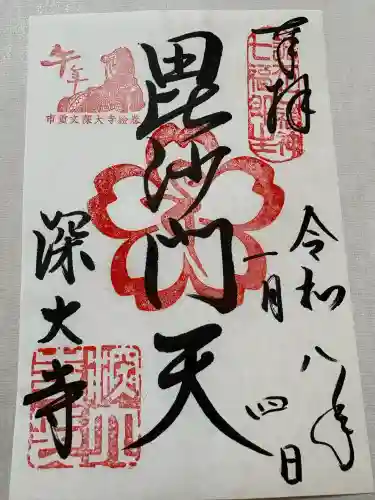 奉拝
令和八年
一月四日
毘沙門天
午年
市重文深大寺絵巻
深大寺